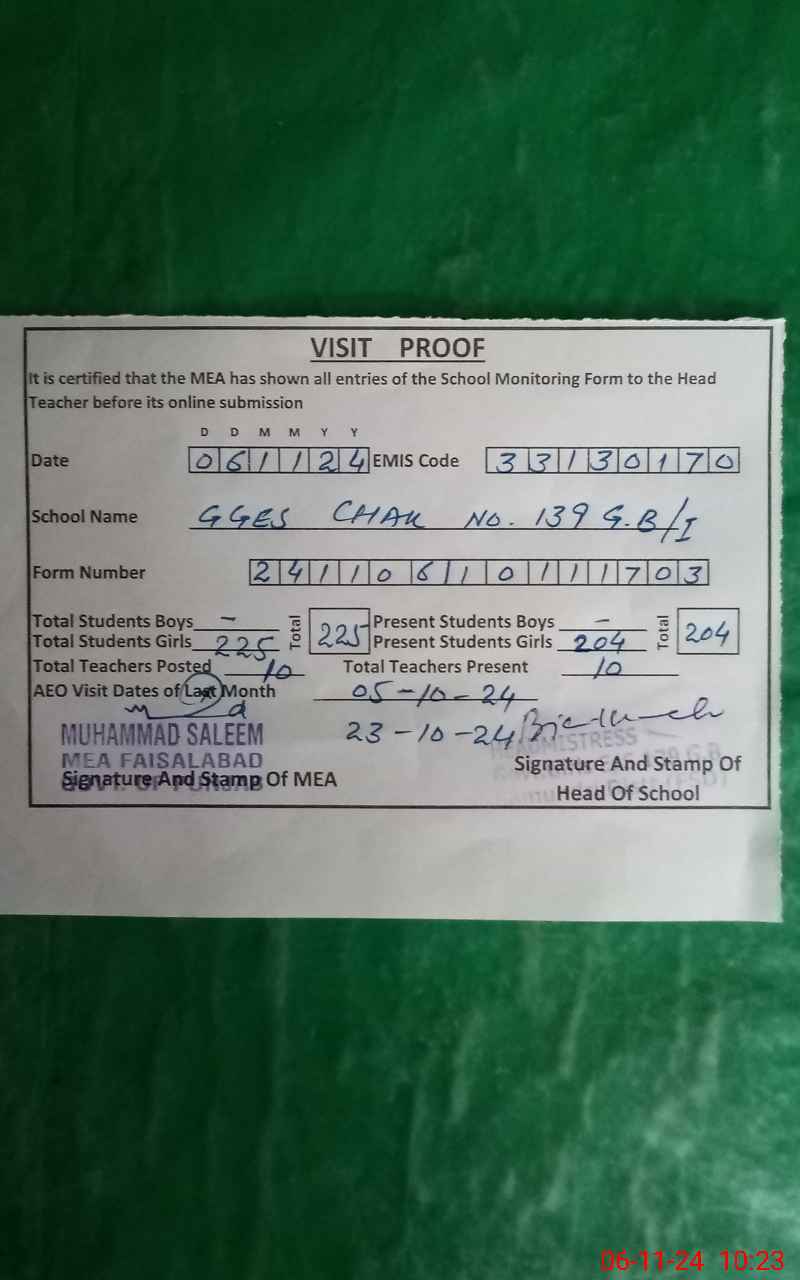 VISIT PROOF
It is certified that the MEA has shown all entries of the School Monitoring Form to the Head
Teacher before its online submission
D D M M Y Y
Date 061124 EMIS Code 33130170
School Name GGES CHAK NO. 139 G.B/I
Form Number 241106101111703
Total Students Boys - Total 225 Present Students Boys - Total 204
Total Students Girls 225 Present Students Girls 204
Total Teachers Posted 10 Total Teachers Present 10
AEO Visit Dates of Last Month 05-10-24
23-10-24
MUHAMMAD SALEEM
MEA FAISALABAD
HEADMISTRESS
Signature And Stamp Of MEA
Signature And Stamp Of
Head Of School
06-11-24 10:23